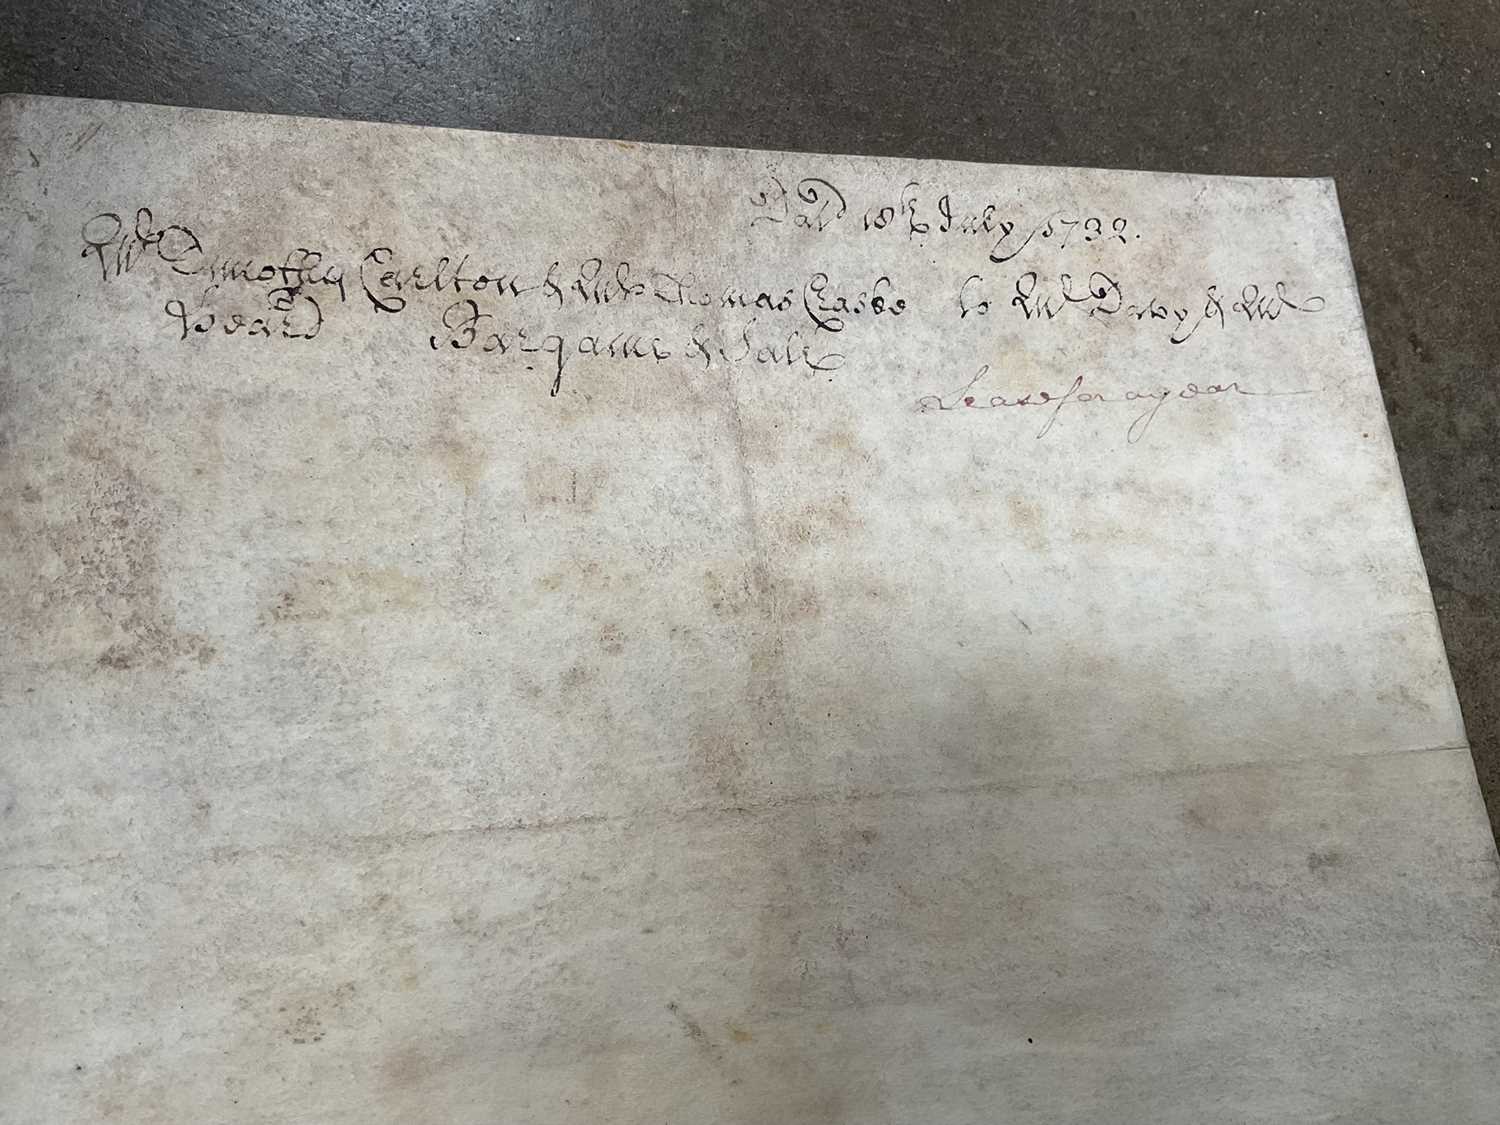 Dat'd 18th July 1732.
Mr Timothy Carlton & Mr Thomas Craske to Mr Davy & Mr
Beard Bargaine & Sale
Lease for a year